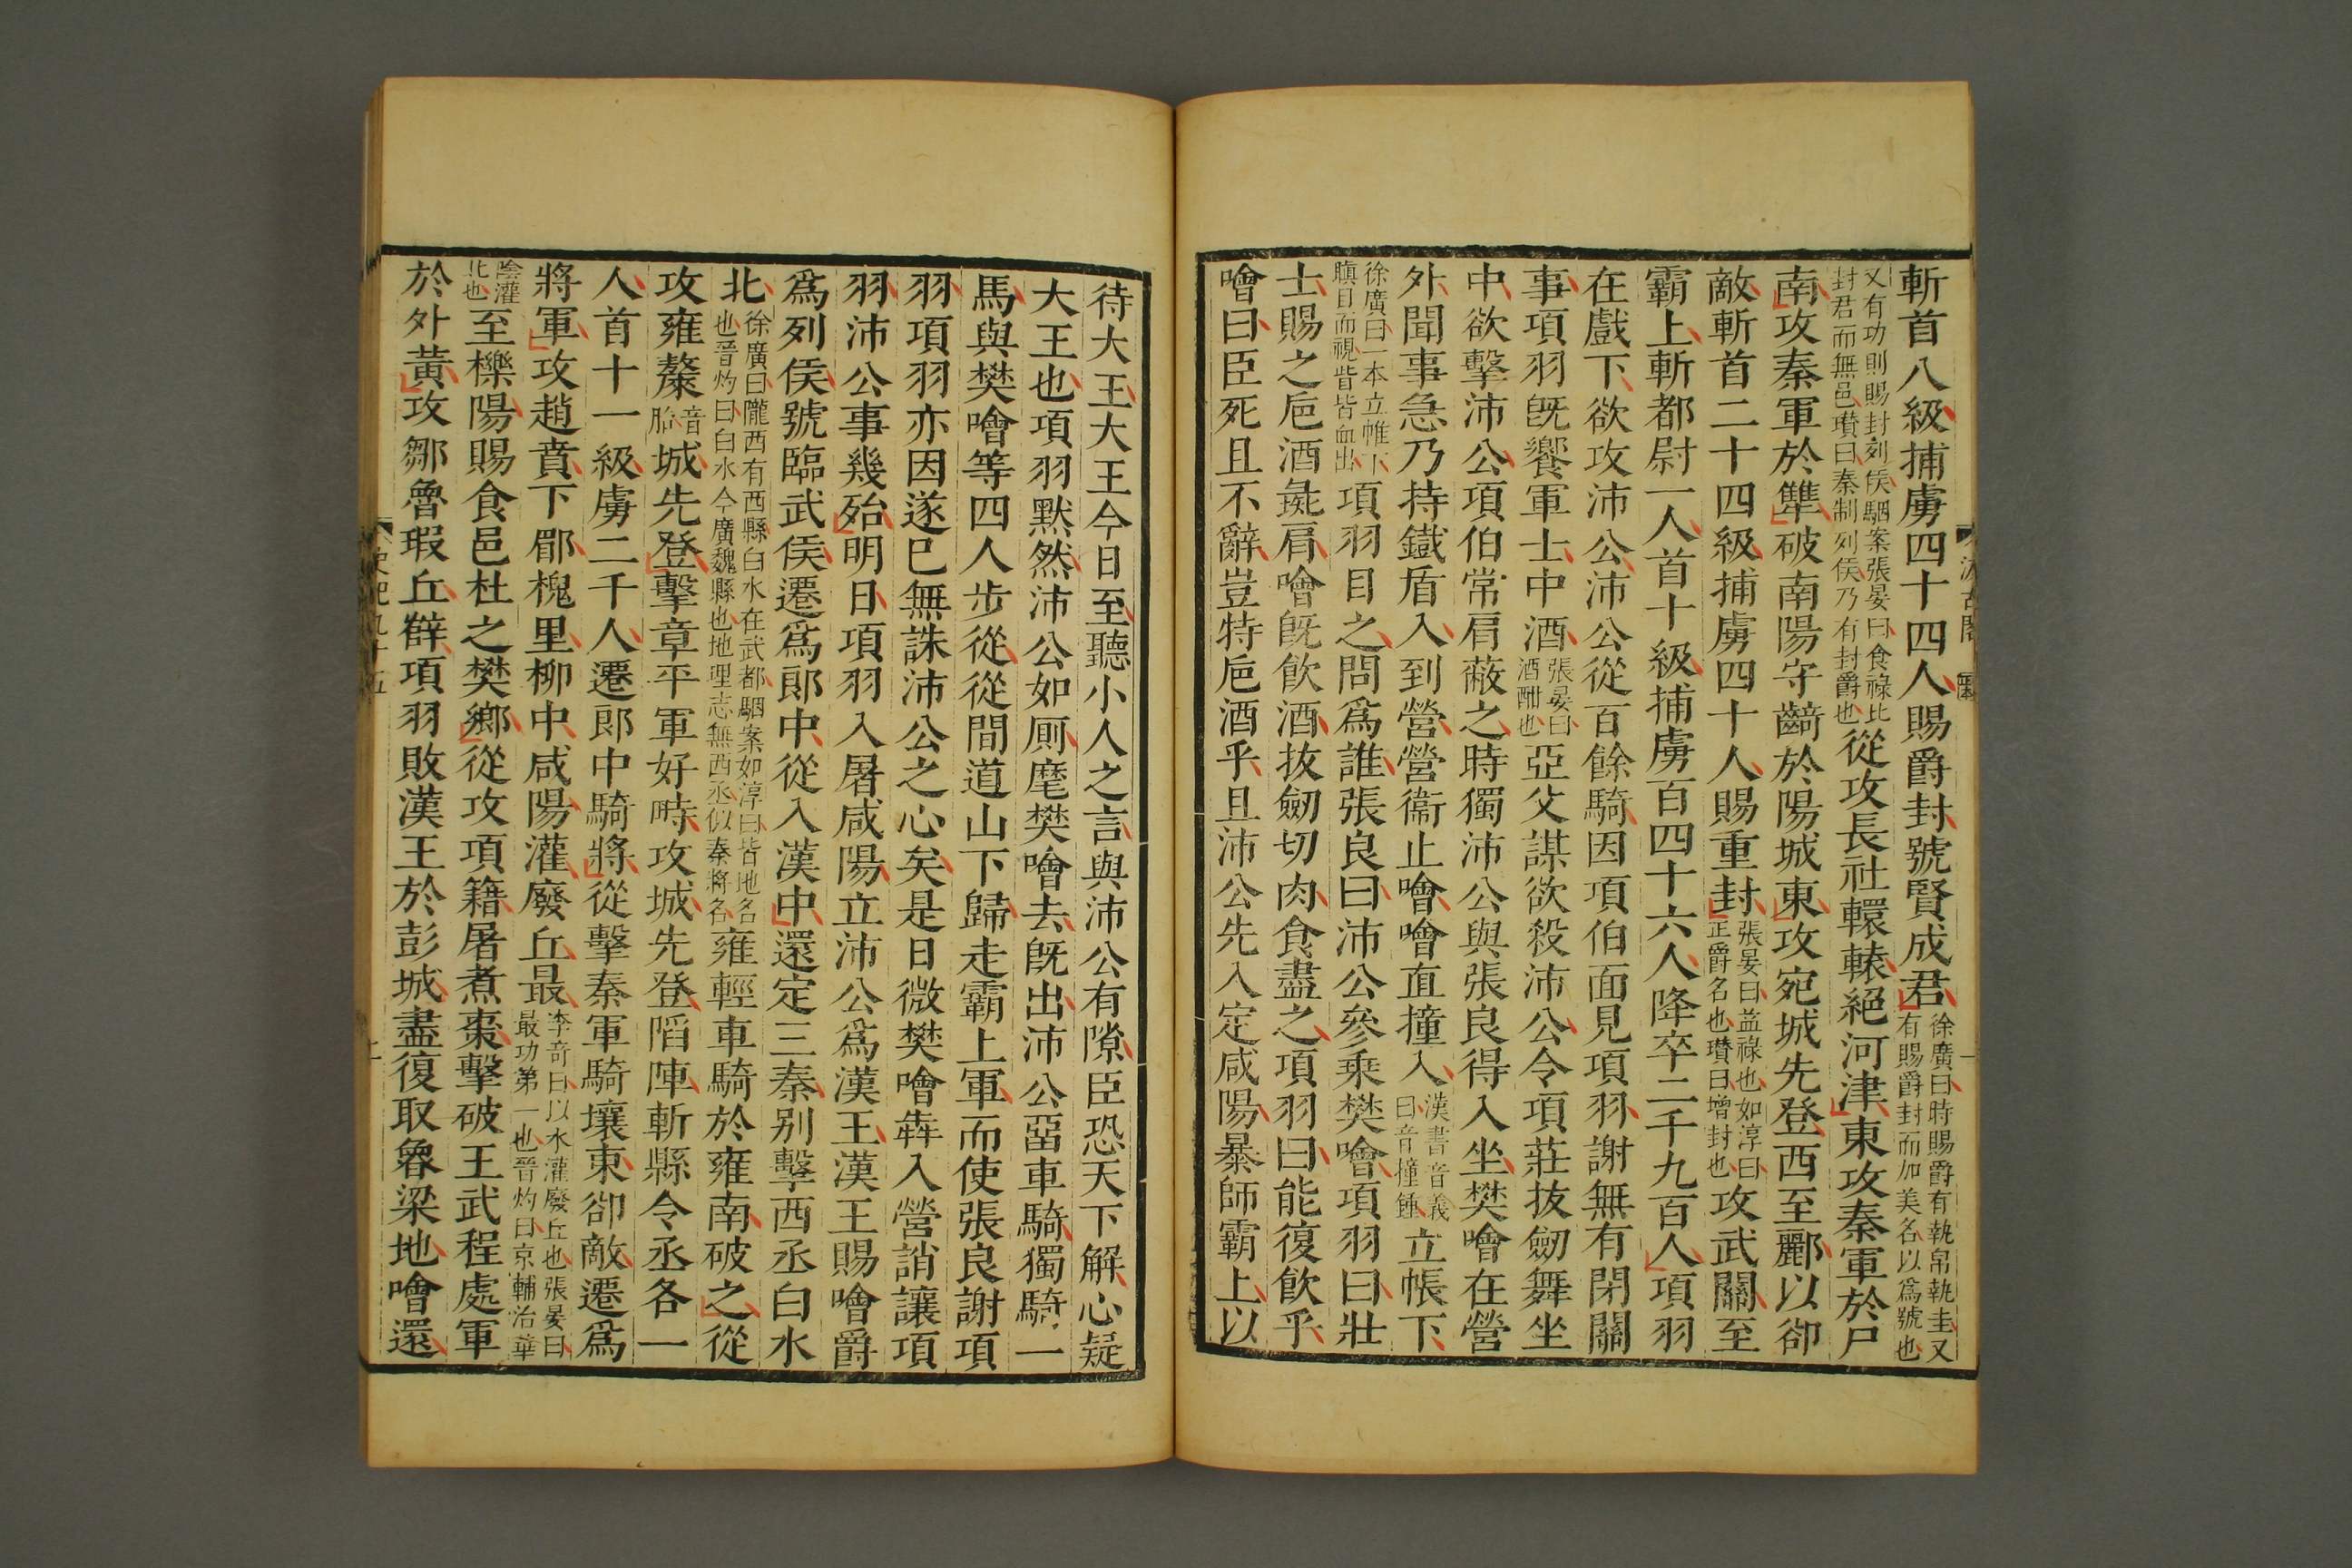 斬首八級捕虜四十四人賜爵封號賢成君徐廣曰時賜爵有執帛執圭又有賜爵封而加美名以爲號也
又有功則賜封列侯駰案張晏曰食祿比封君而無邑瓚曰秦制列侯乃有封爵也從攻長社轘轅絕河津東攻秦軍於尸
南攻秦軍於犨破南陽守齮於陽城東攻宛城先登西至酈以卻
敵斬首二十四級捕虜四十人賜重封張晏曰益祿也如淳曰正爵名也瓚曰增封也攻武關至
霸上斬都尉一人首十級捕虜百四十六人降卒二千九百人項羽
在戲下欲攻沛公沛公從百餘騎因項伯面見項羽謝無有閉關
事項羽旣饗軍士中酒張晏曰酒酣也亞父謀欲殺沛公令項莊拔劒舞坐
中欲擊沛公項伯常肩蔽之時獨沛公與張良得入坐樊噲在營
外聞事急乃持鐵盾入到營營衞止噲噲直撞入漢書音義曰音撞鍾立帳下
徐廣曰一本立帷下瞋目而視眥皆血出項羽目之問爲誰張良曰沛公參乘樊噲項羽曰壯
士賜之卮酒彘肩噲旣飮酒拔劒切肉食盡之項羽曰能復飮乎
噲曰臣死且不辭豈特卮酒乎且沛公先入定咸陽暴師霸上以
待大王大王今日至聽小人之言與沛公有隙臣恐天下解心疑
大王也項羽默然沛公如厠麾樊噲去旣出沛公畱車騎獨騎一
馬與樊噲等四人步從從間道山下歸走霸上軍而使張良謝項
羽項羽亦因遂已無誅沛公之心矣是日微樊噲犇入營誚讓項
羽沛公事幾殆明日項羽入屠咸陽立沛公爲漢王漢王賜噲爵
爲列侯號臨武侯遷爲郞中從入漢中還定三秦別擊西丞白水
北徐廣曰隴西有西縣白水在武都駰案如淳曰皆地名也晉灼曰白水今廣魏縣也地理志無西丞似秦將名雍輕車騎於雍南破之從
攻雍斄音胎城先登擊章平軍好畤攻城先登陷陣斬縣令丞各一
人首十一級虜二十人遷郎中騎將從擊秦軍騎壤東卻敵遷爲
將軍攻趙賁下郿槐里柳中咸陽灌廢丘最李竒曰以水灌廢丘也張晏曰最功第一也晉灼曰京輔治華
陰灌北也至櫟陽賜食邑杜之樊鄉從攻項籍屠煮棗擊破王武程處軍
於外黃攻鄒魯瑕丘薛項羽敗漢王於彭城盡復取魯梁地噲還
史記九十五